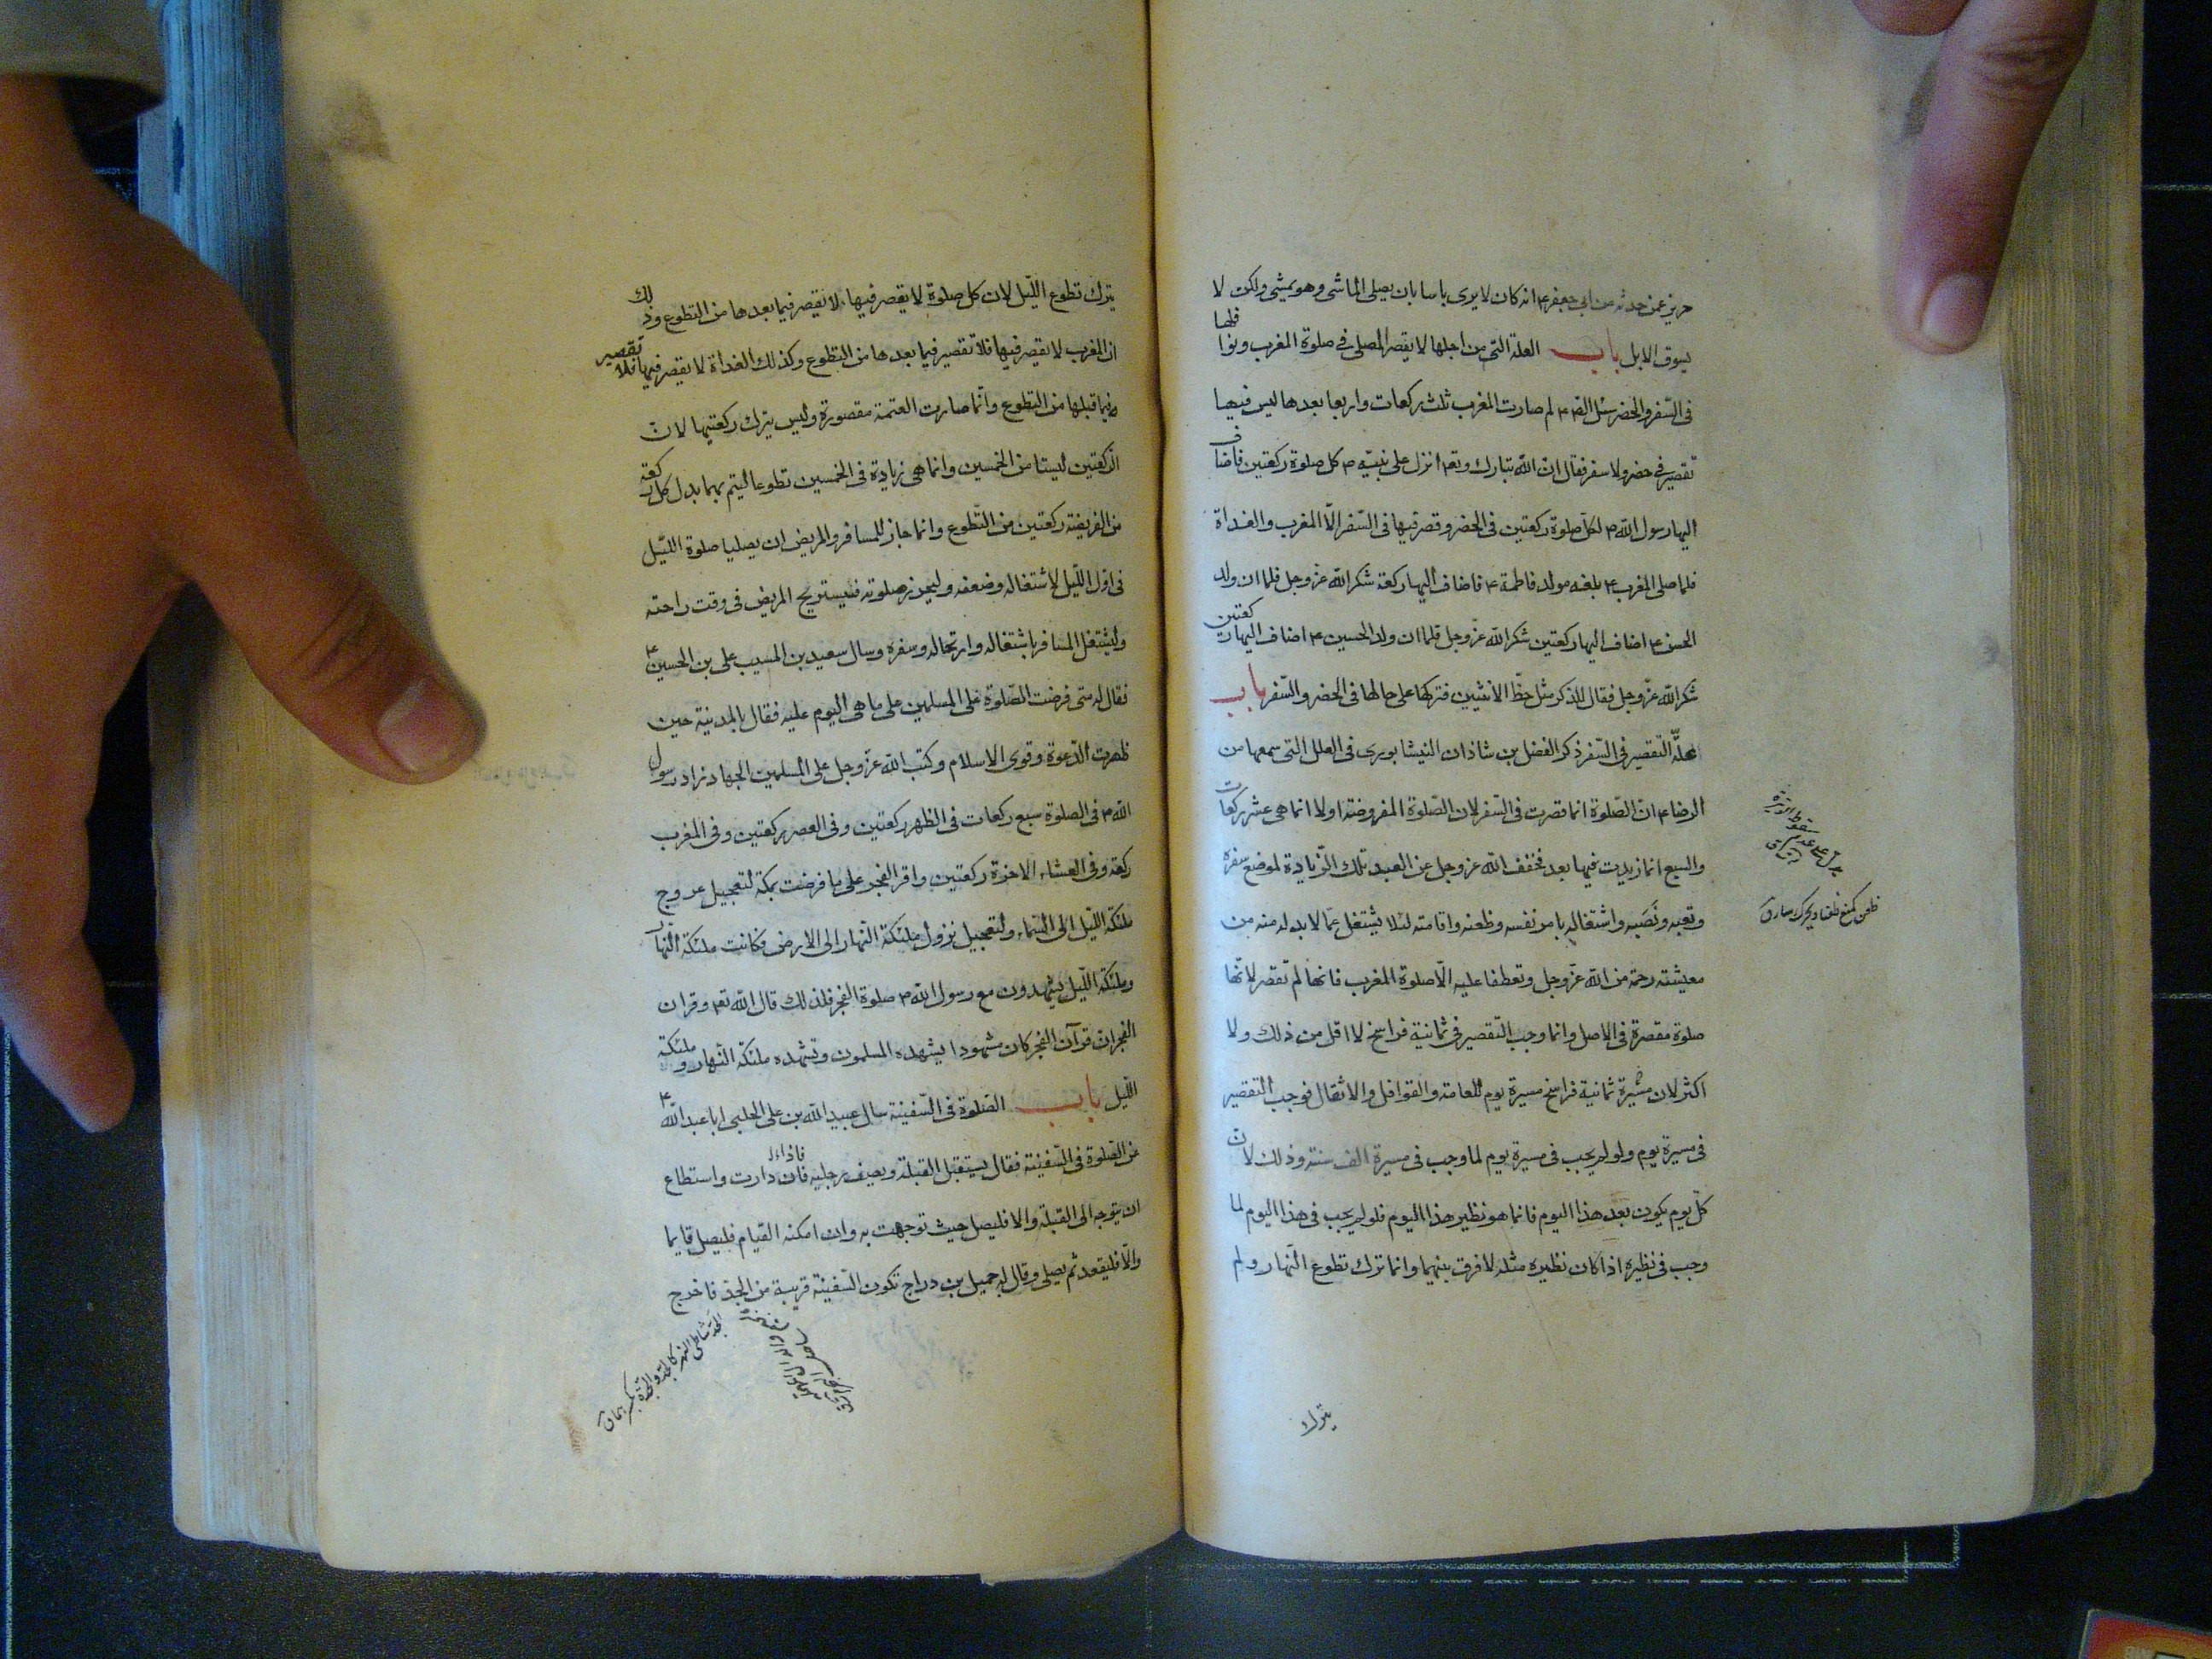 حريز عمن حدثه من ابى جعفر ع انه كان لا يرى باسا بان يصلى الماشى وهو يمشى ولكن لا
يسوق الابل باب العلة التى من اجلها لا يقصر المصلى فى صلوة المغرب ونوافلها
فى السّفر والحضر سئل الصّ ع لم صارت المغرب ثلث ركعات واربعا بعدها ليس فيها
تقصير فى حضر ولا سفر فقال ان اللّه تبارك وتع انزل على نبيّه ص كل صلوة ركعتين فاضاف
اليها رسول اللّه ص لكل صلوة ركعتين فى الحضر وقصر فيها فى السّفر الّا المغرب والغداة
فلما صلى المغرب ع بلغه مولد فاطمة ع فاضاف اليها ركعة شكرا للّه عزّ وجل فلما ان ولد
الحسن ع اضاف اليها ركعتين شكرا للّه عزّ وجل فلما ان ولد الحسين ع اضاف اليها ركعتين
شكرا للّه عزّ وجل فقال للذكر مثل حظّ الانثيين فتركها على حالها فى الحضر والسّفر باب
علّة التّقصير فى السّفر ذكر الفضل بن شاذان النيشابورى فى العلل التى سمعها من
الرضا ع انّ الصّلوة انما قصرت فى السّفر لان الصّلوة المفروضة اولا انما هى عشر ركعات
والسبع انما زيدت فيها بعد فخفف اللّه عز وجل عن العبد تلك الزّيادة لموضع سفره
وتعبه ونَصَبِه واشتغاله بامر نفسه وظعنه واقامته لئلا يشتغل عمّا لا بد له منه من
معيشته رحمة من اللّه عزّ وجل وتعطفا عليه الّا صلوة المغرب فانها لم تقصر لانّها
صلوة مقصرة فى الاصل وانما وجب التّقصير فى ثمانية فراسخ لا اقل من ذلك ولا
اكثر لان مسيرة ثمانية فراسخ مسيرة يوم للعامة والقوافل والاثقال فوجب التقصير
فى مسيرة يوم ولو لم يجب فى مسيرة يوم لما وجب فى مسيرة الف سنة وذلك لانّ
كلّ يوم يكون بعد هذا اليوم فانما هو نظير هذا اليوم فلو لم يجب فى هذا اليوم لما
وجب فى نظيره اذا كان نظيره مثله لا فرق بينهما وانما ترك تطوع النّهار ولم
يترك
يترك تطوع اللّيل لان كل صلوة لا يقصر فيها لا يقصر فيما بعدها من التطوع وذلك
ان المغرب لا يقصر فيها فلا تقصير فيما بعدها من التطوع وكذلك الغداة لا يقصر فيها فلا تقصير
فيما قبلها من التطوع وانّما صارت العتمة مقصورة وليس يترك ركعتيها لانّ
الرّكعتين ليستا من الخمسين وانما هى زيادة فى الخمسين تطوعا ليتم بهما بدل كل ركعة
من الفريضة ركعتين من التّطوع وانما جاز للمسافر والمريض ان يصليا صلوة اللّيل
فى اوّل اللّيل لاشتغاله وضعفه وليحرز صلوته فيستريح المريض فى وقت راحته
وليشتغل المسافر باشتغاله وارتحاله وسفره وسال سعيد بن المسيب على بن الحسين ع
فقال له متى فرضت الصّلوة على المسلمين على ما هى اليوم عليه فقال بالمدينة حين
ظهرت الدّعوة وقوى الاسلام وكتب اللّه عزّ وجل على المسلمين الجهاد زاد رسول
اللّه ص فى الصلوة سبع ركعات فى الظهر ركعتين وفى العصر ركعتين وفى المغرب
ركعة وفى العشاء الاخرة ركعتين واقر الفجر على ما فرضت بمكة لتعجيل عروج
ملئكة اللّيل الى السّماء ولتعجيل نزول ملئكة النّهار الى الارض فكانت ملئكة النّهار
وملئكة اللّيل يشهدون مع رسول اللّه ص صلوة الفجر فلذلك قال اللّه تع وقران
الفجر انّ قرآن الفجر كان مشهودا يشهده المسلمون وتشهده ملئكة النّهار وملئكة
اللّيل باب الصّلوة فى السّفينة سال عبيد اللّه بن على الحلبى ابا عبد اللّه ع
عن الصّلوة فى السّفينة فقال يستقبل القبلة ويصف رجليه فان دارت واستطاع
ان يتوجه الى القبلة والا فليصل حيث توجهت به وان امكنه القيام فليصل قايما
والّا فليقعد ثم يصلى وقال له جميل بن دراج تكون السّفينة قريبة من الجدّ فاخرج